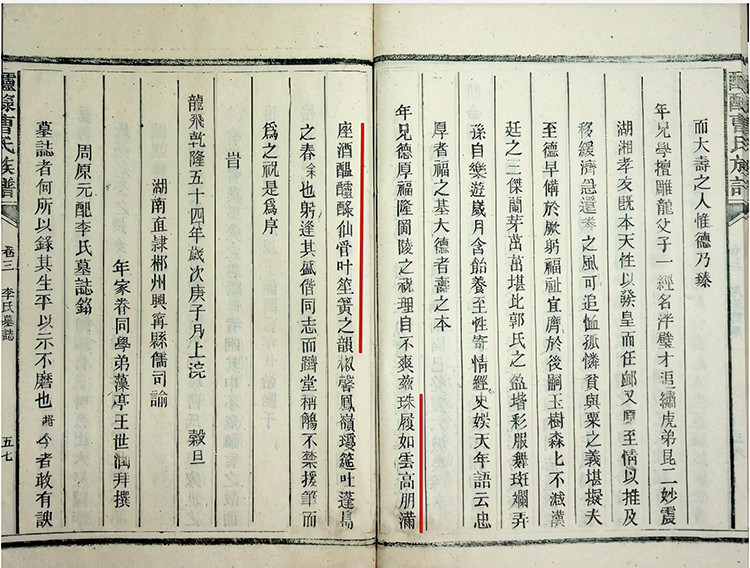 曹氏族譜
而大壽之人惟德乃臻
年兄學檀雕龍父子一經名泮壁才追繡虎弟昆二妙震
湖湘孝友既本天性以發皇而任卹又摩至情以推及
移緩濟急還券之風可追恤孤憐貧與粟之義堪擬夫
至德早備於厥躬福祉宜膺於後嗣玉樹森上不減漢
廷之三傑蘭芽茁茁堪比郭氏之盈堦彩服舞斑斕弄
孫自樂遊歲月含飴養至性寄情經史娛天年語云忠
厚者福之基大德者壽之本
年兄德厚福隆岡陵之祝理自不爽茲珠履如雲高朋滿
座酒醞醽醁仙管叶笙簧之韻椒馨鳳嶺瓊筵吐蓬島
之春余也躬逢其盛偕同志而躋堂稱觴不禁援筆而
爲之祝是爲序
旹
龍飛乾隆五十四年歲次庚子月上浣 穀旦
湖南直隸郴州興甯縣儒司諭
年家眷同學弟藻亭王世潤拜撰
周原元配李氏墓誌銘
墓誌者何所以錄其生平以示不磨也 今者敢有諛
醽醁曹氏族譜 卷三 李氏墓誌 五七